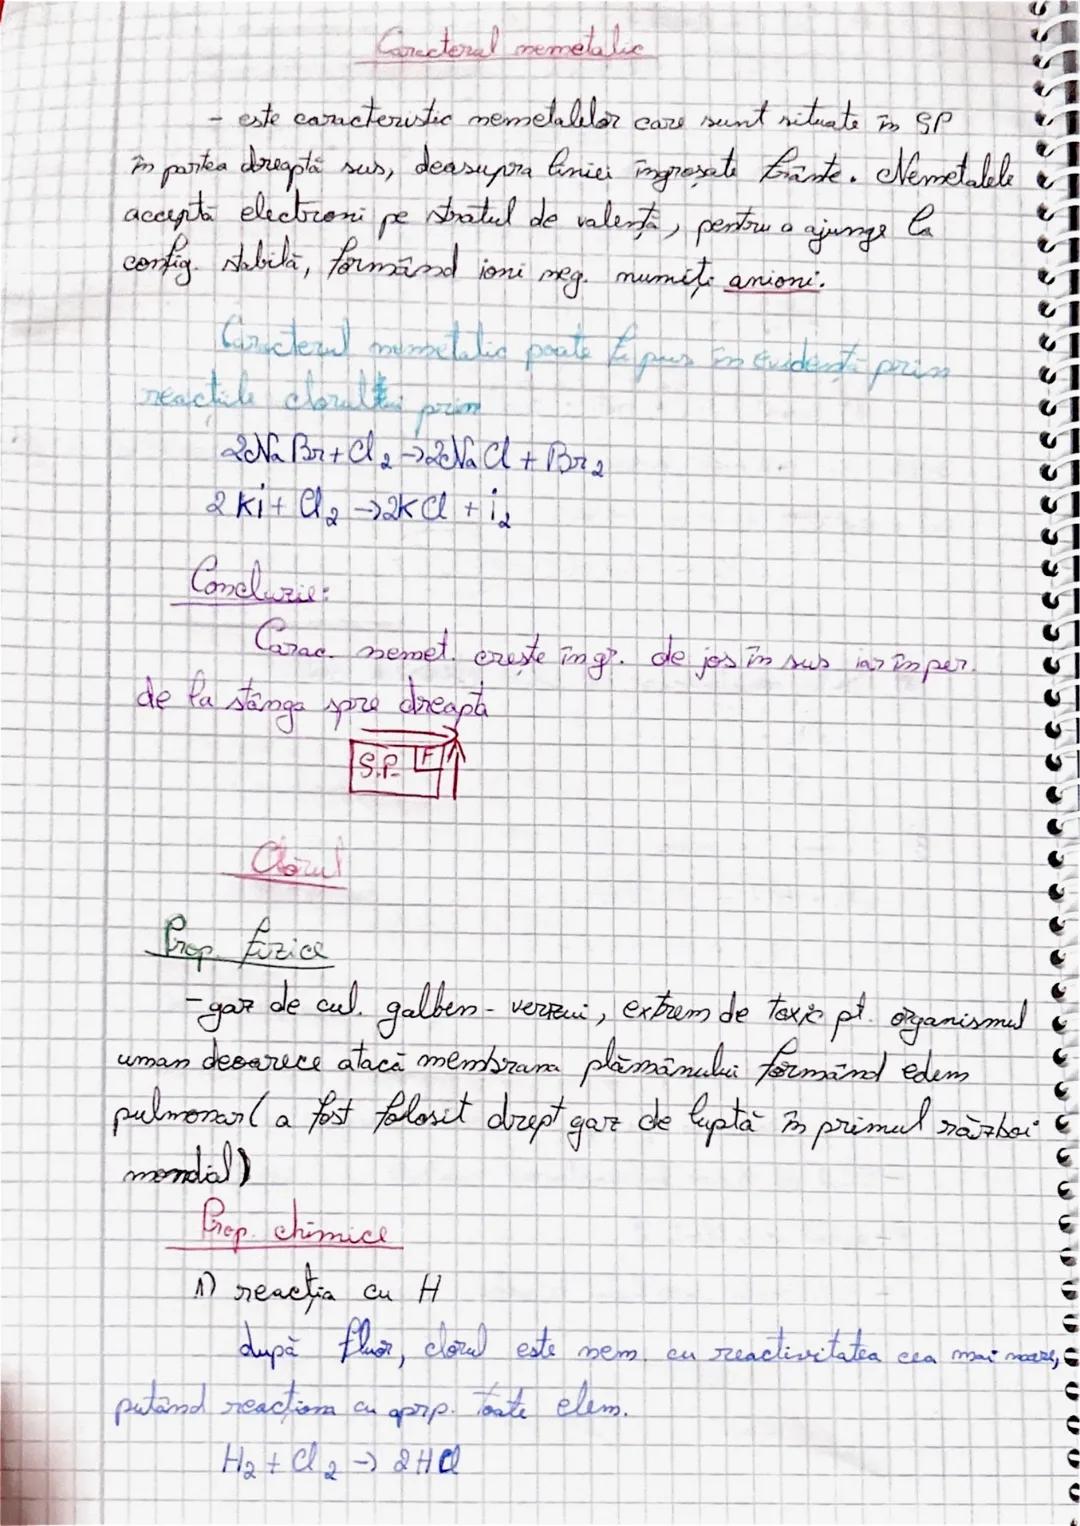 Caracterul nemetalic
- este caracteristic nemetalelor care sunt situate în SP
în partea dreaptă sus, deasupra liniei îngroșate frânte. Nemetalele
acceptă electroni pe stratul de valență, pentru a ajunge la
config. stabilă, formând ioni neg. numiți anioni.
Caracterul nemetalic poate fi pus în evidență prin
reacțiile clorului prin
2NaBr + Cl2 → 2NaCl + Br2
2Ki + Cl2 → 2KCl + i2
Concluzie:
Carac. nemet. crește în gr. de jos în sus iar în per.
de la stânga spre dreapta
S.P. F
Clorul
Prop. fizice
- gaz de cul. galben - verzui, extrem de toxic pt. organismul
uman deoarece atacă membrana plămânului formând edem
pulmonar ( a fost folosit drept gaz de luptă în primul război
mondial)
Prop. chimice
1) reacția cu H
după fluor, clorul este nem. cu reactivitatea cea mai mare,
putând reacționa cu aprp. toate elem.
H2 + Cl2 → 2HCl